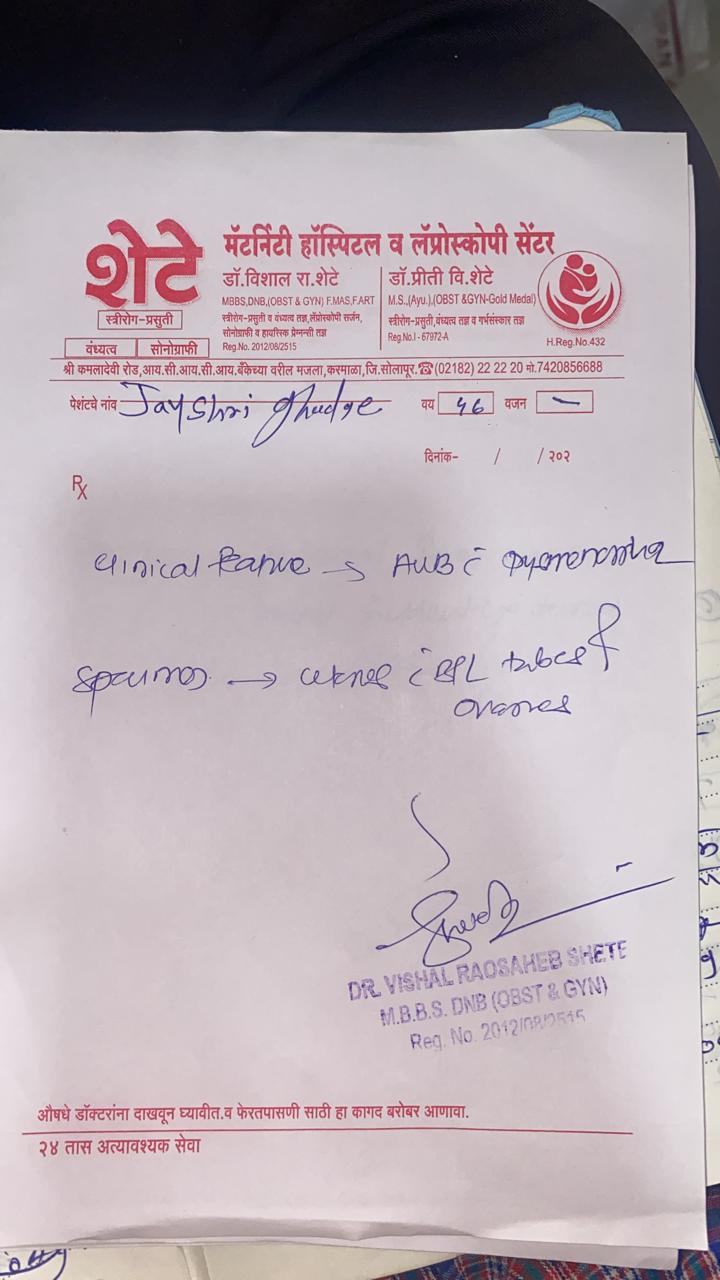 शेटे
स्त्रीरोग-प्रसुती
वंध्यत्व सोनोग्राफी
मॅटर्निटी हॉस्पिटल व लॅप्रोस्कोपी सेंटर
डॉ.विशाल रा.शेटे
MBBS,DNB,(OBST & GYN) F.MAS,F.ART
स्त्रीरोग-प्रसुती व वंध्यत्व तज्ञ,लॅप्रोस्कोपी सर्जन,
सोनोग्राफी व हायरिस्क प्रेग्नन्सी तज्ञ
Reg.No. 2012/08/2515
डॉ.प्रीती वि.शेटे
M.S.,(Ayu.),(OBST &GYN-Gold Medal)
स्त्रीरोग-प्रसुती,वंध्यत्व तज्ञ व गर्भसंस्कार तज्ञ
Reg.No.I - 67972-A
H.Reg.No.432
श्री कमलादेवी रोड,आय.सी.आय.सी.आय.बँकेच्या वरील मजला,करमाळा,जि.सोलापूर.☎(02182) 22 22 20 मो.7420856688
पेशंटचे नांव Jayshri Ghudge वय 46 वजन -
दिनांक- / / २०२
Rx
clinical → AUB c̄
→ c̄ B/L tubes &
ovaries
DR. VISHAL RAOSAHEB SHETE
M.B.B.S. DNB (OBST & GYN)
Reg. No. 2012/08/2515
औषधे डॉक्टरांना दाखवून घ्यावीत.व फेरतपासणी साठी हा कागद बरोबर आणावा.
२४ तास अत्यावश्यक सेवा